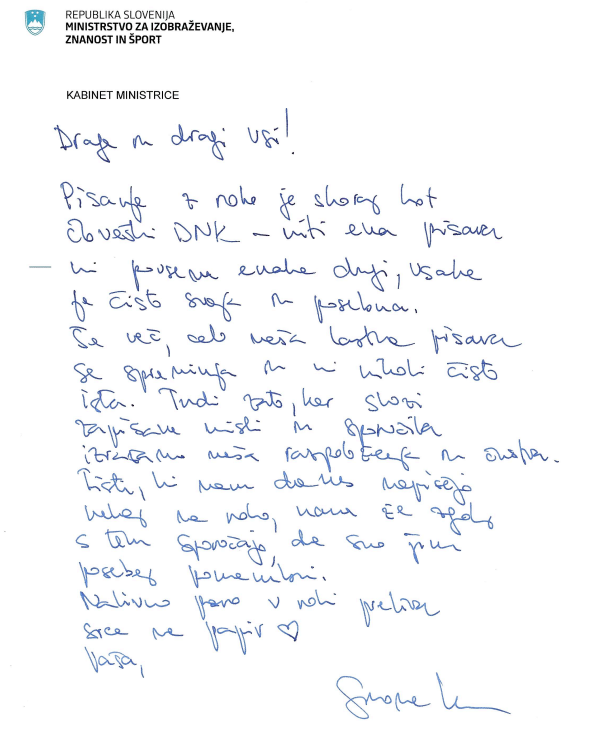 REPUBLIKA SLOVENIJA
MINISTRSTVO ZA IZOBRAŽEVANJE,
ZNANOST IN ŠPORT
KABINET MINISTRICE
Drage in dragi vsi!
Pisanje z roko je skoraj kot
človeški DNK – niti ena pisava
ni povsem enaka drugi, vsaka
je čisto svoja in posebna.
Še več, celo naša lastna pisava
se spreminja in ni nikoli čisto
ista. Tudi zato, ker skozi
zapisane misli in sporočila
izražamo naša razpoloženja in čustva.
Tisti, ki nam danes napišejo
nekaj na roko, nam že zgolj
s tem sporočajo, da smo jim
posebej pomembni.
Nalivno pero v roki preliva
srce na papir ♡
Vaša,